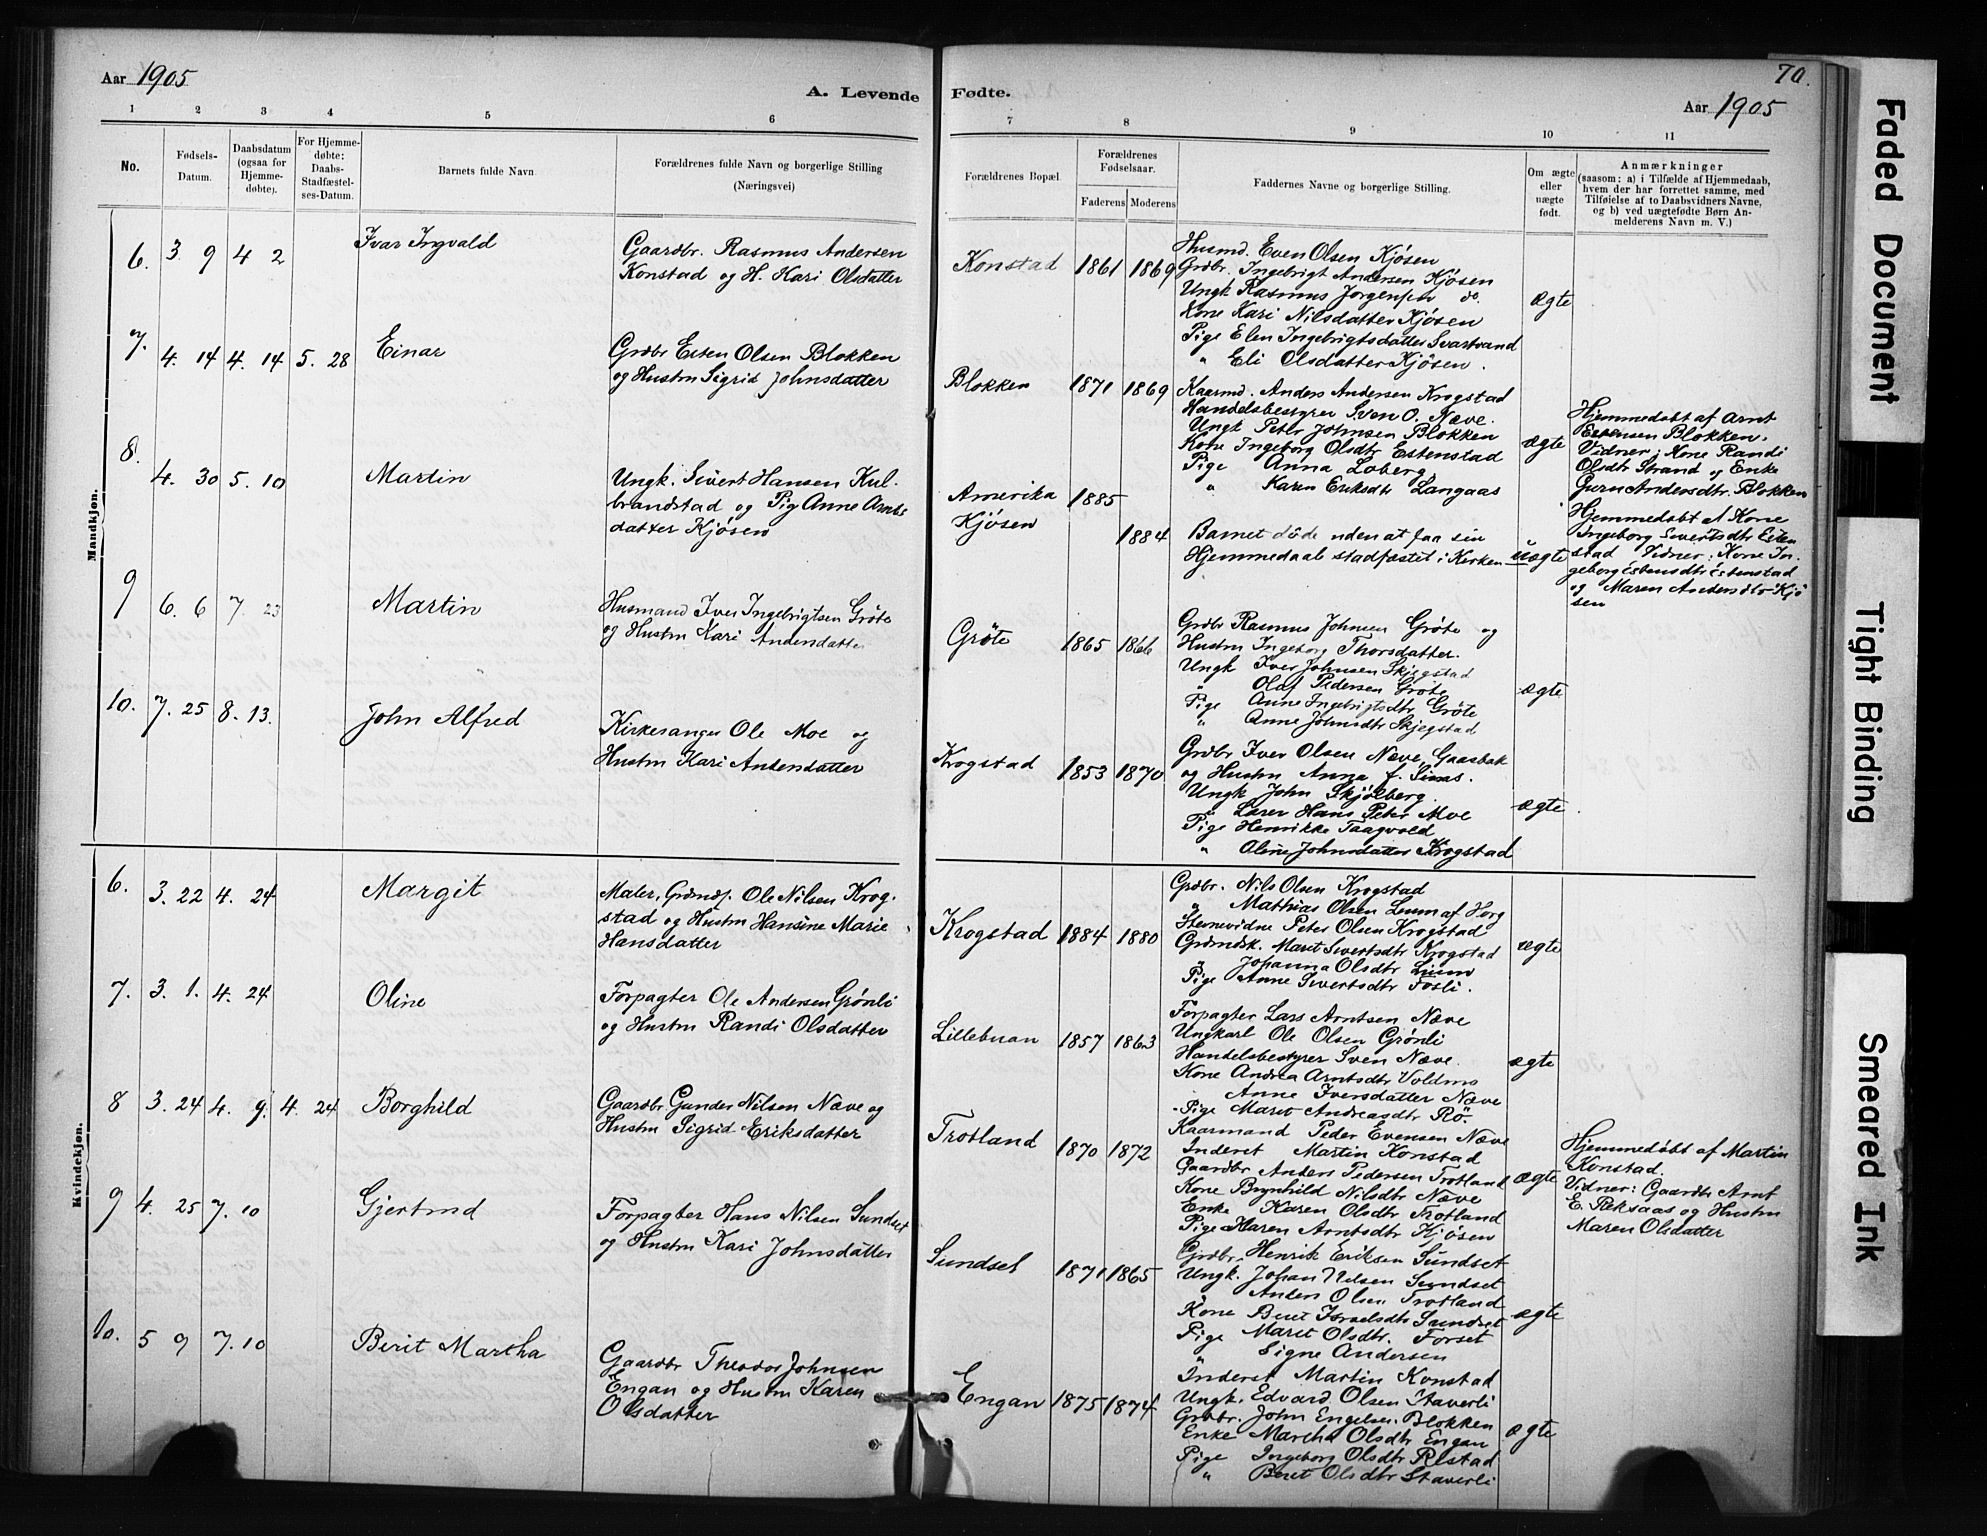 Aar 1905
A. Levende
1 2 3 4 5 6
No.
Fødsels-Datum.
Daabsdatum (ogsaa for Hjemmedøbte).
For Hjemmedøbte: Daabs-Stadfæstelses-Datum.
Barnets fulde Navn
Forældrenes fulde Navn og borgerlige Stilling
(Næringsvei)
Mandkjøn.
6. 3 9 4 2 Ivar Ingvald
Gaardbr. Rasmus Andersen
Konstad og H. Kari Olsdatter
7. 4. 14 4. 14 5. 28 Einar
Grdbr Esten Olsen Blokken
og Hustru Sigrid Johnsdatter
8. 4. 30 5. 10 Martin
Ungk. Sivert Hansen Kul-
brandstad og Pig Anne Arnts
datter Kjøsen
9 6. 6 7. 23 Martin
Husmand Iver Ingebrigtsen Grøte
og Hustru Kari Andersdatter
10. 7. 25 8. 13. John Alfred
Kirkesanger Ole Moe og
Hustru Kari Andersdatter
Kvindekjøn.
6. 3. 22 4. 24 Margit
Maler, Ole Nilsen Krog-
stad og Hustru Hansine Marie
Hansdatter
7. 3. 1. 4. 24 Oline
Forpagter Ole Andersen Grønli
og Hustru Randi Olsdatter
8 3. 24 4. 9. 4. 24 Borghild
Gaardbr Gunder Nilsen Næve og
Hustru Sigrid Eriksdatter
9 4. 25 7. 10 Gjertrud
Forpagter Hans Nilsen Sundset
og Hustru Kari Johnsdatter
10. 5 9 7. 10 Berit Martha
Gaardbr Theodor Johnsen
Engan og Hustru Karen
Olsdatter
70.
Fødte.
Aar 1905
7 8 9 10 11
Forældrenes Bopæl.
Forældrenes Fødselsaar.
Faderens Moderens
Faddernes Navne og borgerlige Stilling.
Om ægte eller uægte født.
Anmærkninger
(saasom: a) i Tilfælde af Hjemmedaab,
hvem der har forrettet samme, med
Tilføielse af to Daabsvidners Navne,
og b) ved uægtefødte Børn An-
melderens Navn m. V.)
Konstad 1861 1869 ægte
Husmd. Even Olsen Kjøsen
Grdbr. Ingebrigt Andersen Kjøsen
Ungk Rasmus Jørgensen do.
Kone Kari Nilsdatter Kjøsen
Pige Elen Ingebrigtsdatter Svartvand
" Eli Olsdatter Kjøsen.
Blokken 1871 1869 ægte
Kaarmd. Anders Andersen Krogstad
Handelsbestyrer Sven O. Næve.
Ungk Peter Johnsen Blokken
Kone Ingeborg Olsdtr Estenstad
Pige Anna Loberg
" Karen Eriksdtr Langaas
Hjemmedøbt af Arnt
Estensen Blokken.
Vidner: Kone Randi
Olsdtr Strand og Enke
Guru Andersdtr. Blokken
Amerika 1885
Kjøsen 1884 uægte
Barnet døde uden at faa sin
Hjemmedaab stadfæstet i Kirken
Hjemmedøbt af Kone
Ingeborg Sivertsdtr Esten
stad Vidner: Kone In-
geborg Estensdtr Estenstad
og Maren Andersdtr Kjø
sen
Grøte 1865 1866 ægte
Grdbr Rasmus Johnsen Grøte og
Hustru Ingeborg Thorsdatter.
Ungk Iver Johnsen Skjegstad
" Olaf Pedersen Grøte
Pige Anne Ingebrigtsdtr Grøte
" Anne Johnsdtr Skjegstad
Krogstad 1853 1870 ægte
Grdbr Iver Olsen Næve, Gaasbak
og Hustru Anna f. Simas.
Ungk John Skjølberg
" Lærer Hans Peter Moe
Pige Henrikke Taagvold
" Oline Johnsdatter Krogstad
Krogstad 1884 1880 ægte
Grdbr. Nils Olsen Krogstad
" Matthias Olsen Leum af Horg
Stevnevidne Peter Olsen Krogstad
Grdmdsk. Marit Sivertsdtr Krogstad
" Johanna Olsdtr Leum
Pige Anne Sivertsdtr Fosli.
Lillebuan 1857 1863 ægte
Forpagter Lars Arntsen Næve
Ungkarl Ole Olsen Grønli
Handelsbestyrer Sven Næve.
Kone Andrea Arntsdtr Voldmo
Anne Iversdatter Næve
Pige Marit Andreasdtr Rö.
Trotland 1870 1872 ægte
Kaarmand Peder Evensen Næve
Inderst Martin Konstad
Gaardbr Anders Pedersen Trotland
Kone Brynhild Nilsdtr Næve
Enke Karen Olsdtr Trotland
Pige Maren Arntsdtr Kjøsen
Hjemmedøbt af Martin
Konstad.
Vidner: Gaardbr Arnt
E. Ræksaas og Hustru
Maren Olsdatter
Sundset 1871 1865 ægte
Grdbr. Henrik Eriksen Sundset
Ungk. Johan Nilsen Sundset
Anders Olsen Trotland
Kone Berit Israelsdtr Sundset
Pige Marit Olsdtr. Forset
" Signe Andersen
Engan 1875 1874 ægte
Inderst Martin Konstad
Ungk. Edvard Olsen Staverli
Grdbr. John Engelsen Blokken
Enke Martha Olsdtr Engan
Pige Ingeborg Olsdtr Ræstad
" Beret Olsdtr Staverli
Faded Document
Tight Binding
Smeared Ink